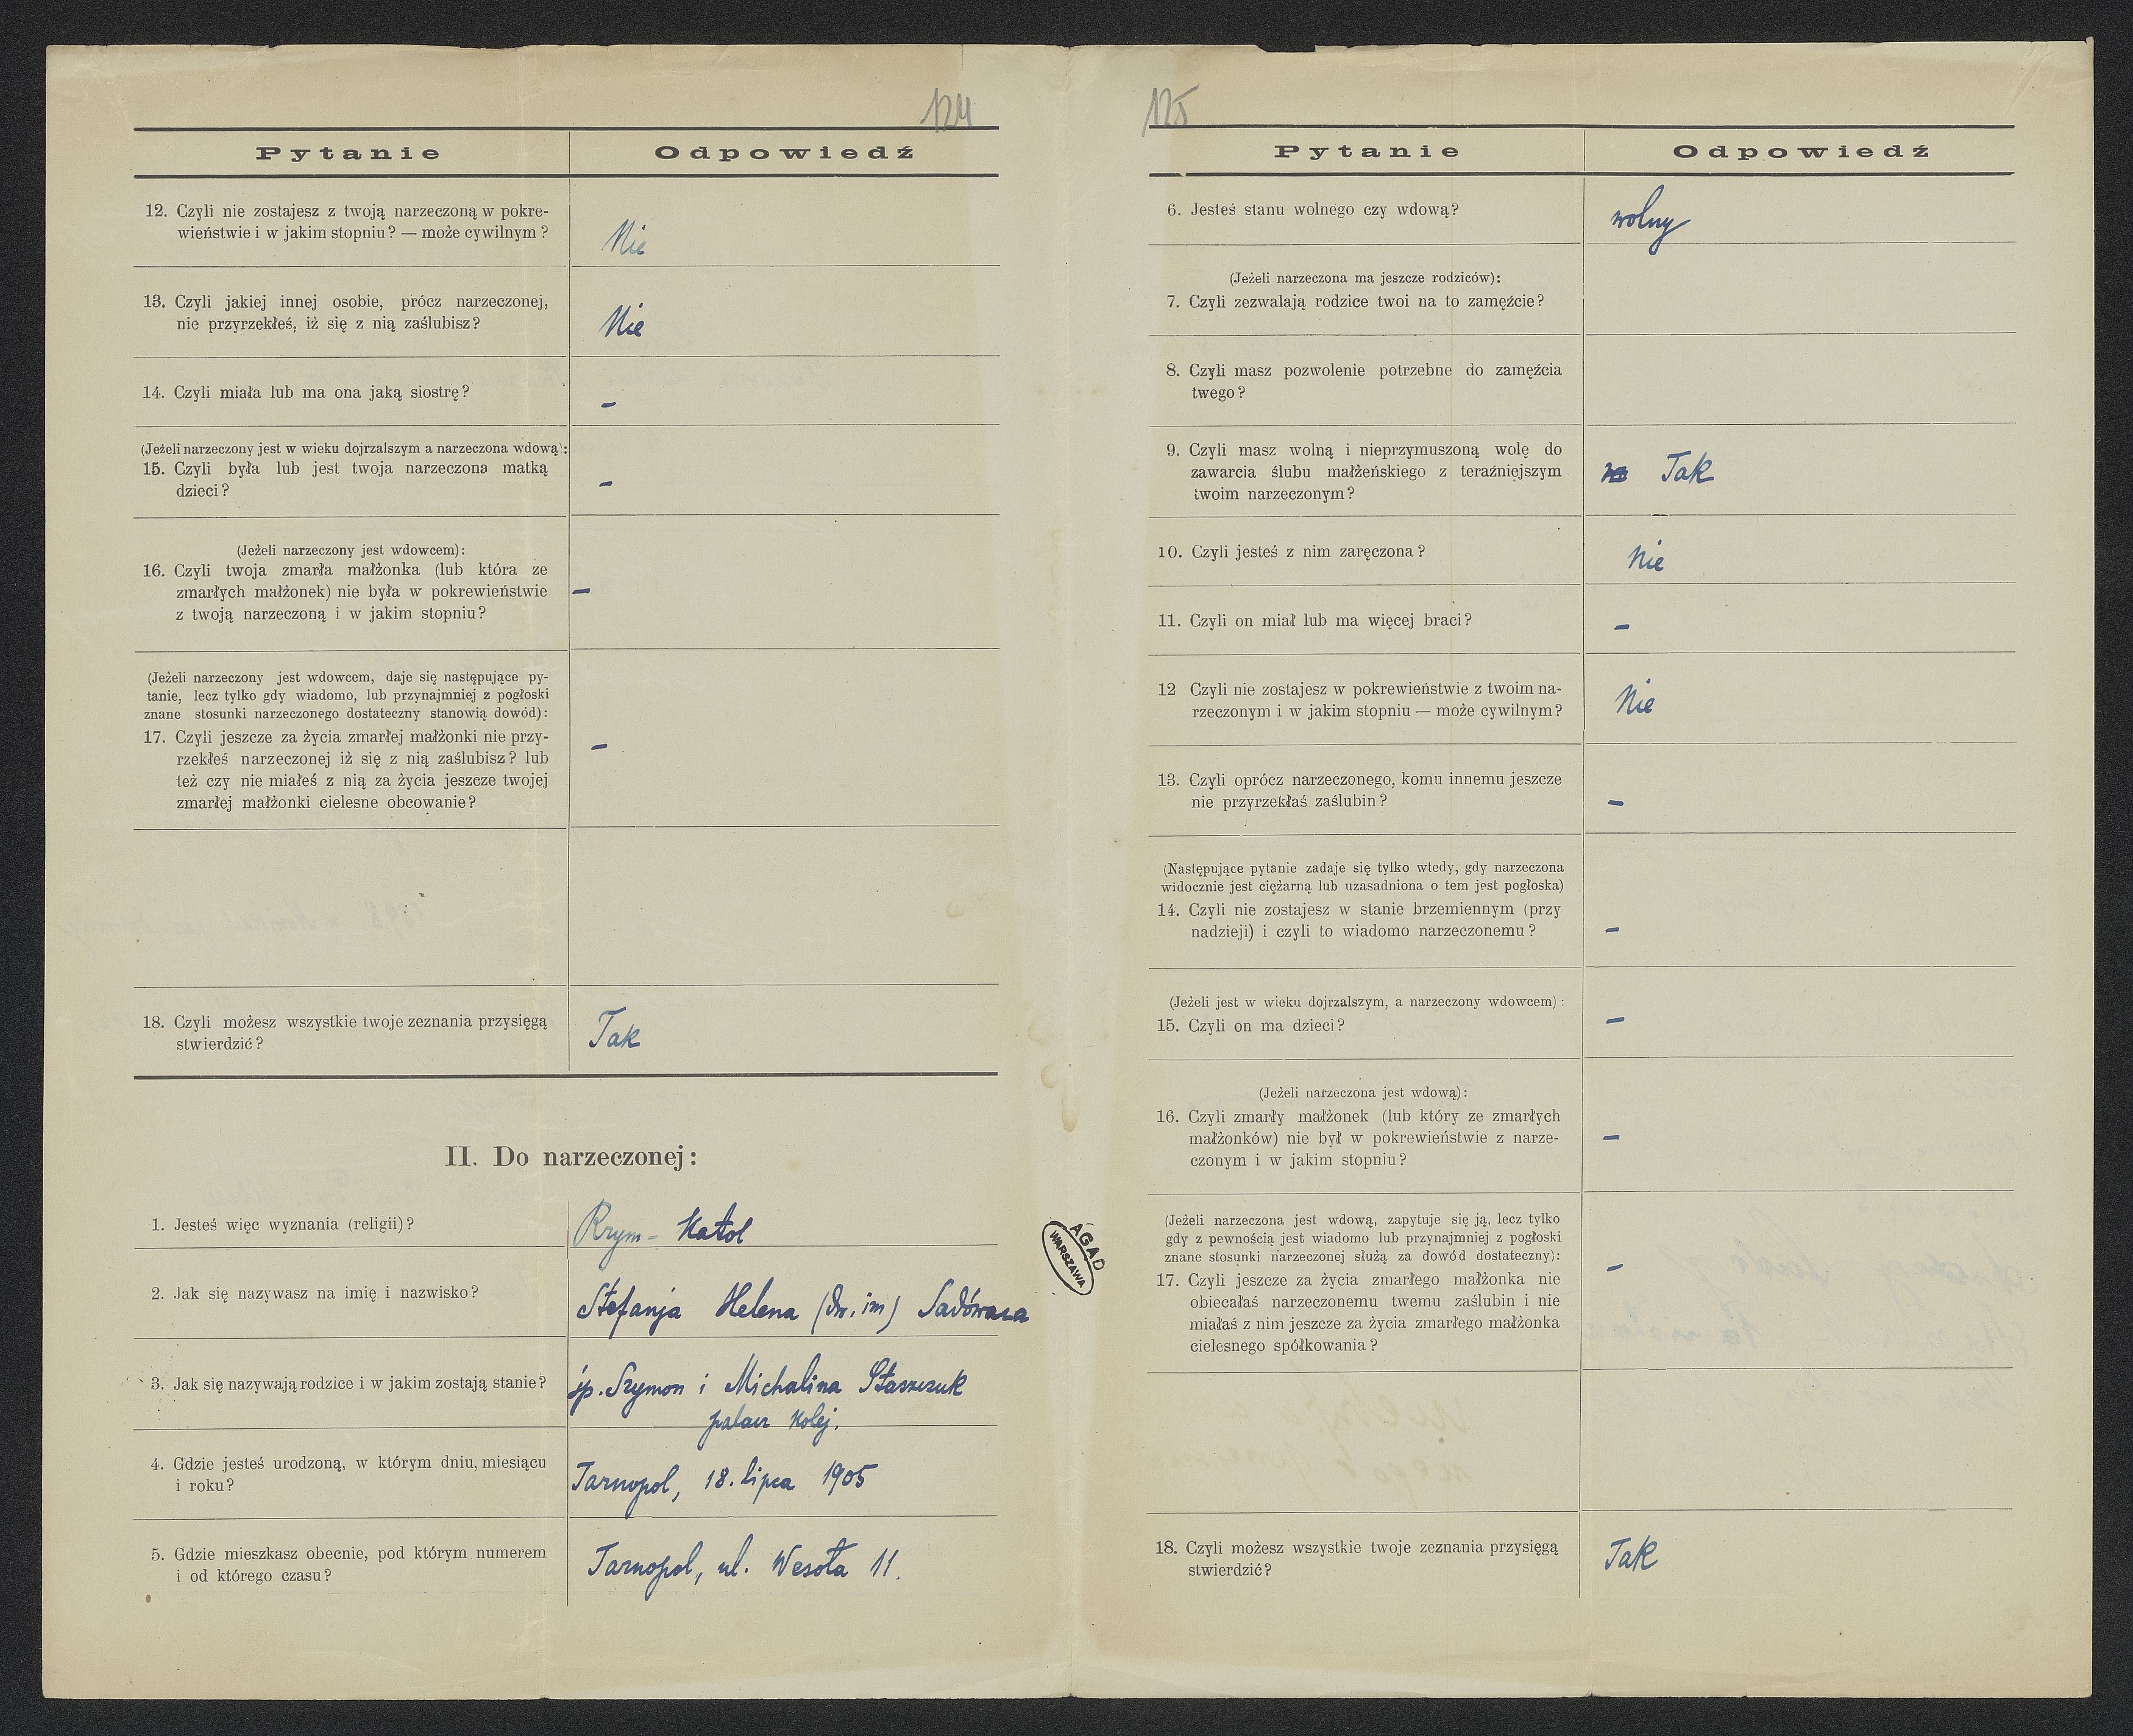 124
Pytanie Odpowiedź
12. Czyli nie zostajesz z twoją narzeczoną w pokre-
wieństwie i w jakim stopniu? — może cywilnym?
Nie
13. Czyli jakiej innej osobie, prócz narzeczonej,
nie przyrzekłeś, iż się z nią zaślubisz?
Nie
14. Czyli miała lub ma ona jaką siostrę?
–
(Jeżeli narzeczony jest w wieku dojrzalszym a narzeczona wdową):
15. Czyli była lub jest twoja narzeczona matką
dzieci?
–
(Jeżeli narzeczony jest wdowcem):
16. Czyli twoja zmarła małżonka (lub która ze
zmarłych małżonek) nie była w pokrewieństwie
z twoją narzeczoną i w jakim stopniu?
–
(Jeżeli narzeczony jest wdowcem, daje się następujące py-
tanie, lecz tylko gdy wiadomo, lub przynajmniej z pogłoski
znane stosunki narzeczonego dostateczny stanowią dowód):
17. Czyli jeszcze za życia zmarłej małżonki nie przy-
rzekłeś narzeczonej iż się z nią zaślubisz? lub
też czy nie miałeś z nią za życia jeszcze twojej
zmarłej małżonki cielesne obcowanie?
–
18. Czyli możesz wszystkie twoje zeznania przysięgą
stwierdzić?
Tak
II. Do narzeczonej:
1. Jesteś więc wyznania (religii)?
Rzym-Katol
2. Jak się nazywasz na imię i nazwisko?
Stefanja Helena (dw. im)
3. Jak się nazywają rodzice i w jakim zostają stanie?
śp. Szymon i Michalina Staszczuk
palacz kolej.
4. Gdzie jesteś urodzoną, w którym dniu, miesiącu
i roku?
Tarnopol, 18. lipca 1905
5. Gdzie mieszkasz obecnie, pod którym numerem
i od którego czasu?
Tarnopol, ul. Wesoła 11.
AGAD
WARSZAWA
125
Pytanie Odpowiedź
6. Jesteś stanu wolnego czy wdową?
wolny
(Jeżeli narzeczona ma jeszcze rodziców):
7. Czyli zezwalają rodzice twoi na to zamęźcie?
8. Czyli masz pozwolenie potrzebne do zamęźcia
twego?
9. Czyli masz wolną i nieprzymuszoną wolę do
zawarcia ślubu małżeńskiego z teraźniejszym
twoim narzeczonym?
Tak
10. Czyli jesteś z nim zaręczona?
Nie
11. Czyli on miał lub ma więcej braci?
–
12 Czyli nie zostajesz w pokrewieństwie z twoim na-
rzeczonym i w jakim stopniu — może cywilnym?
Nie
13. Czyli oprócz narzeczonego, komu innemu jeszcze
nie przyrzekłaś zaślubin?
–
(Następujące pytanie zadaje się tylko wtedy, gdy narzeczona
widocznie jest ciężarną lub uzasadniona o tem jest pogłoska)
14. Czyli nie zostajesz w stanie brzemiennym (przy
nadzieji) i czyli to wiadomo narzeczonemu?
–
(Jeżeli jest w wieku dojrzalszym, a narzeczony wdowcem):
15. Czyli on ma dzieci?
–
(Jeżeli narzeczona jest wdową):
16. Czyli zmarły małżonek (lub który ze zmarłych
małżonków) nie był w pokrewieństwie z narze-
czonym i w jakim stopniu?
–
(Jeżeli narzeczona jest wdową, zapytuje się ją, lecz tylko
gdy z pewnością jest wiadomo lub przynajmniej z pogłoski
znane stosunki narzeczonej służą za dowód dostateczny):
17. Czyli jeszcze za życia zmarłego małżonka nie
obiecałaś narzeczonemu twemu zaślubin i nie
miałaś z nim jeszcze za życia zmarłego małżonka
cielesnego spółkowania?
–
18. Czyli możesz wszystkie twoje zeznania przysięgą
stwierdzić?
Tak